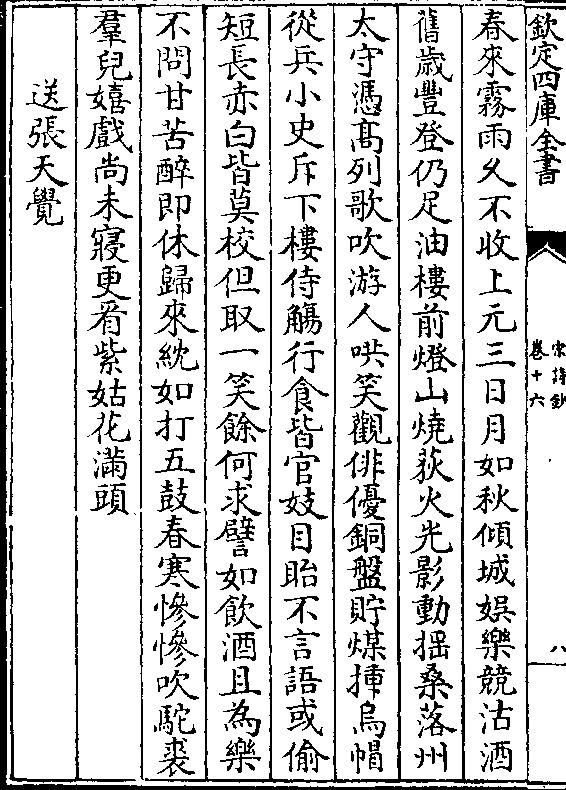 欽定四庫全書
宋詩鈔
卷十六
八
春來霧雨久不收上元三日月如秋傾城娯樂競沽酒
舊歳豐登仍足油樓前燈山燒荻火光影動揺桑落州
太守憑髙列歌吹游人哄笑觀俳優銅盤貯煤揷烏帽
從兵小史斥下樓侍觴行食皆官妓目眙不言語或偷
短長赤白皆莫校但取一笑餘何求譬如飲酒且為樂
不問甘苦醉即休歸來紞如打五鼓春寒慘慘吹駝裘
羣兒嬉戲尚未寢更看紫姑花滿頭
送張天覺